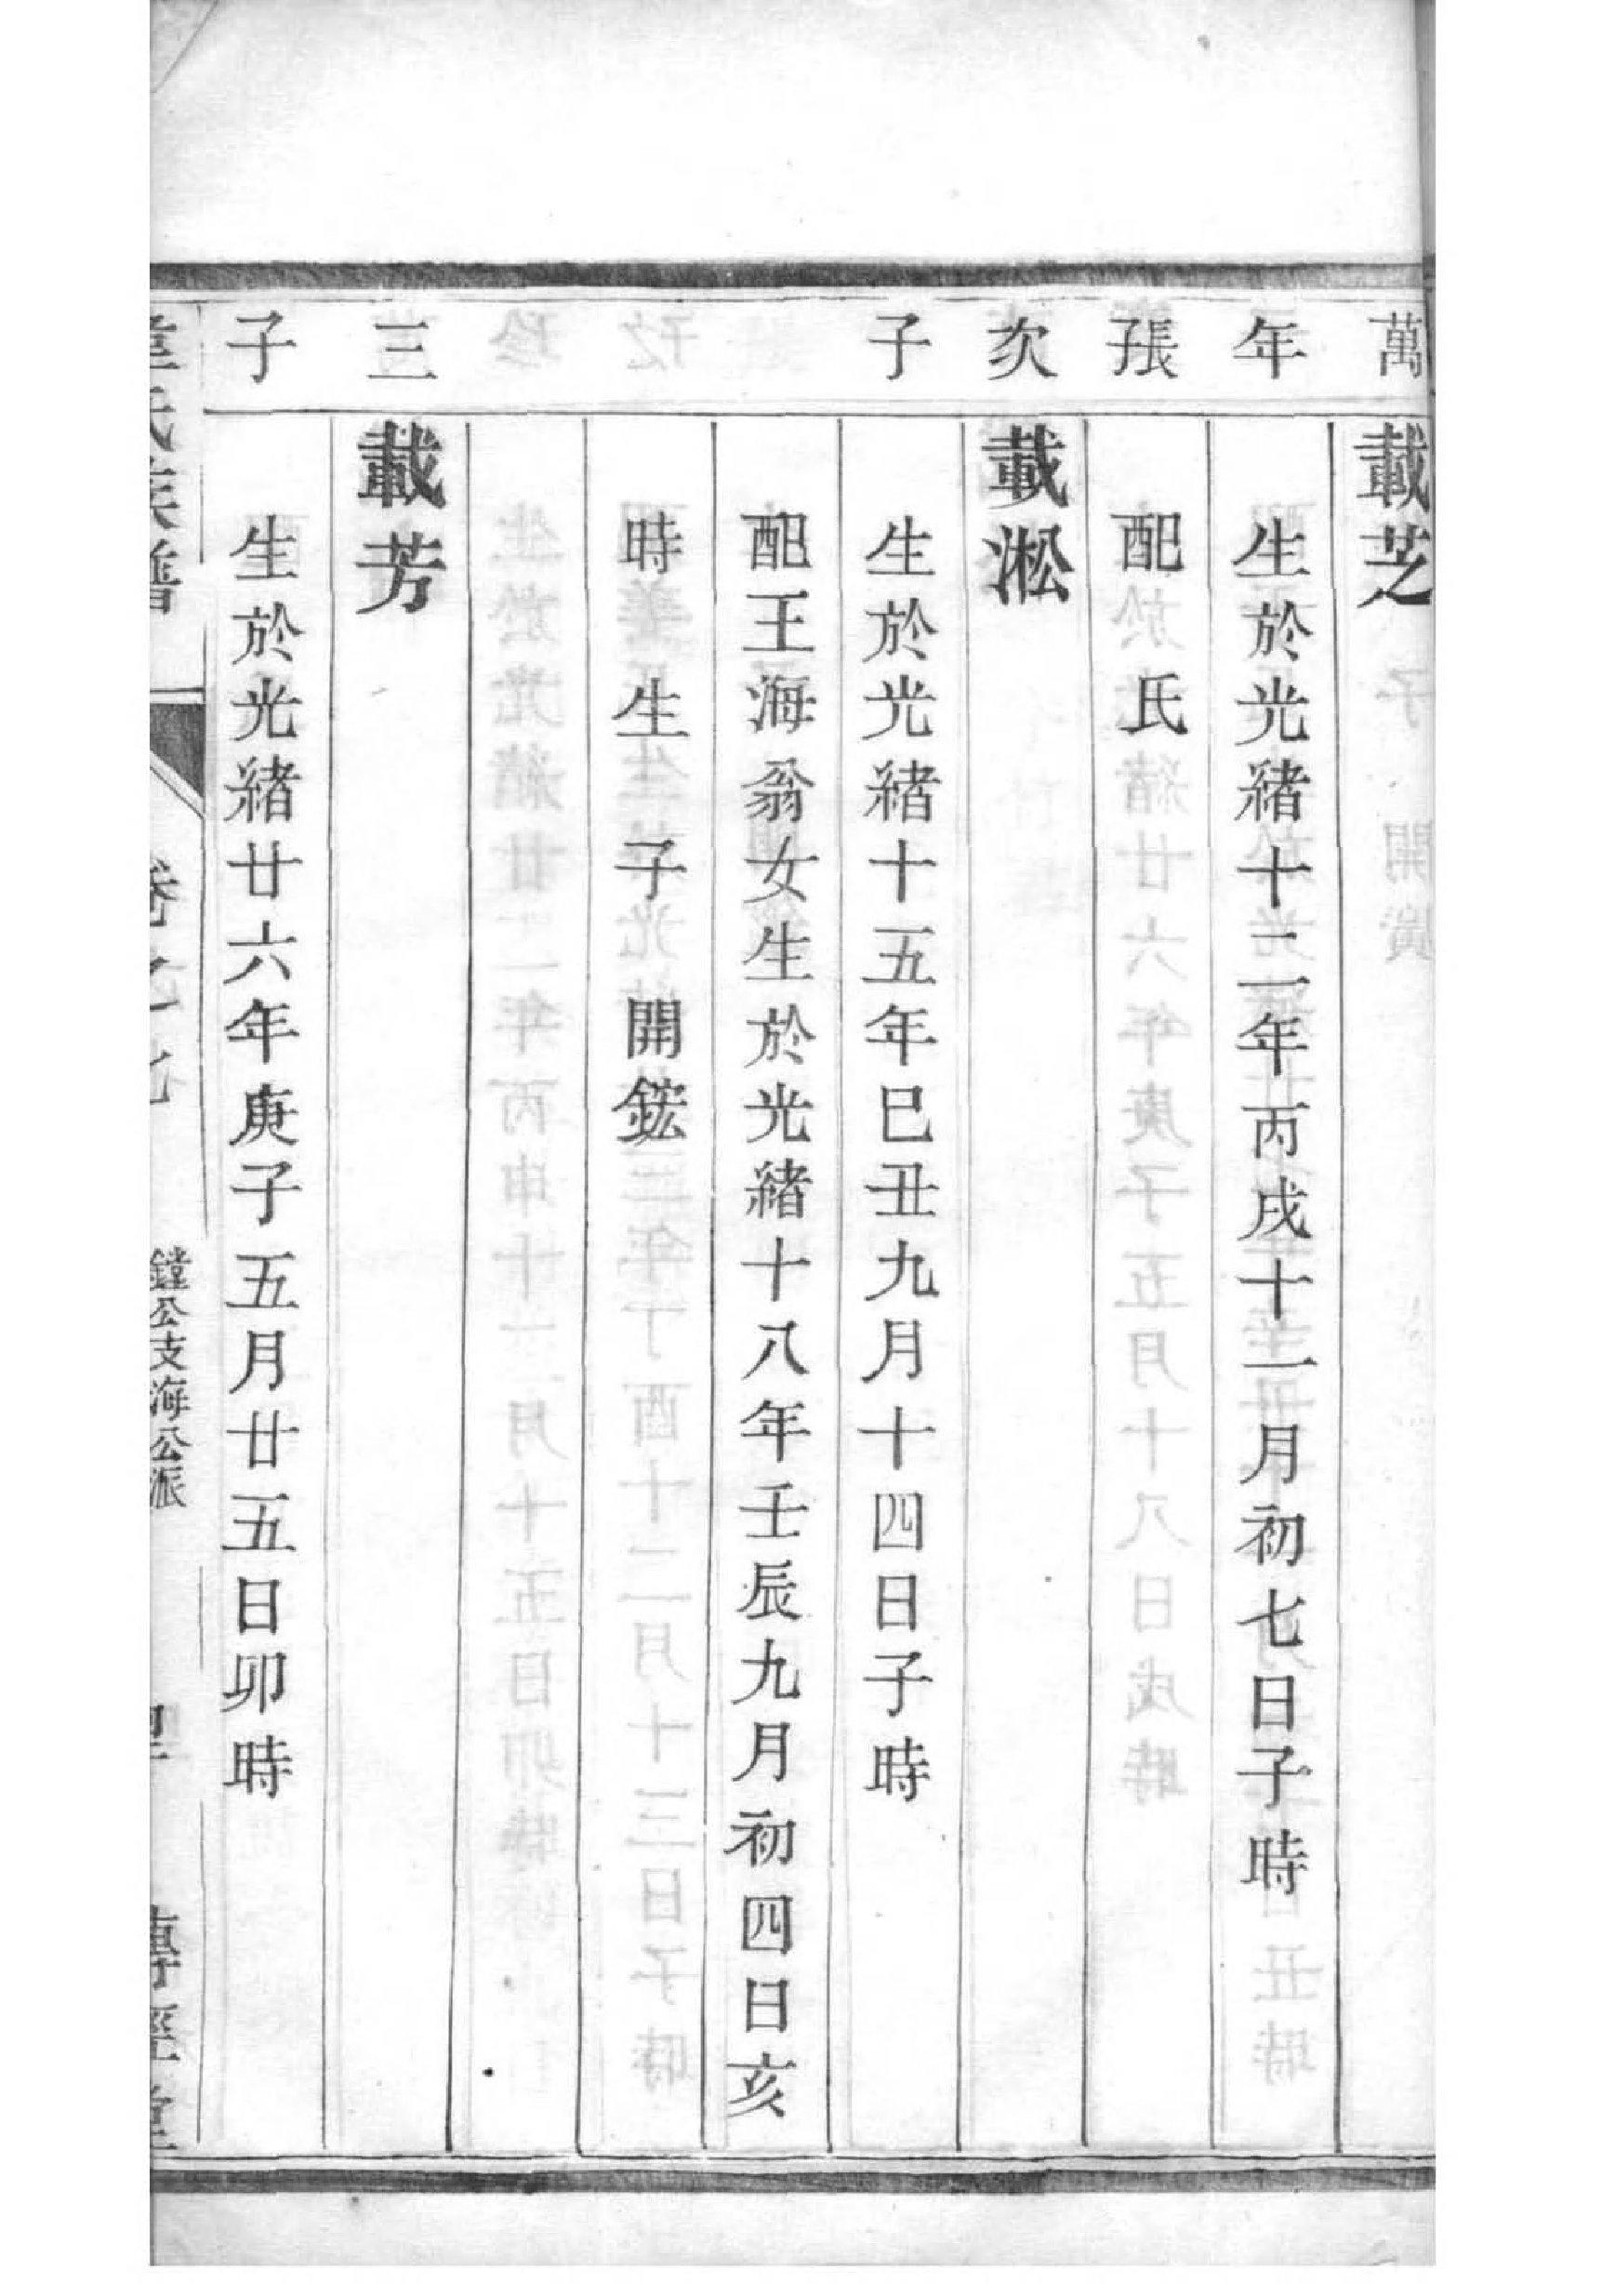 萬年長子
載芝
生於光緒十二年丙戌十一月初七日子時
配 氏
次子
載淞
生於光緒十五年巳丑九月十四日子時
配王海翁女生於光緒十八年壬辰九月初四日亥
時 生 子 開鋐
三子
載芳
生於光緒廿六年庚子五月廿五日卯時
氏族譜
卷之七
鏜公支海公派
傳經堂